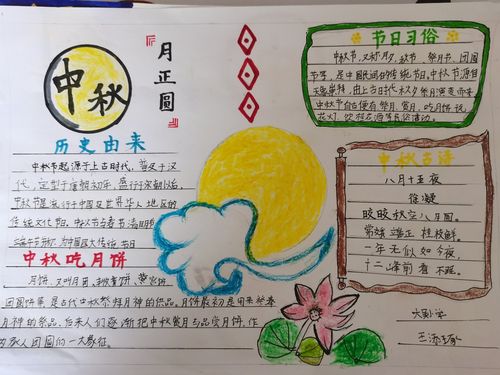 中秋
月正圆
历史由来
中秋节起源于上古时代，普及于汉
代，定型于唐朝初年，盛行于宋朝以后。
中秋节是流行于中国及世界华人地区的
传统文化节，中秋节与春节清明节
端午节并称为中国四大传统节日
中秋吃月饼
月饼，又叫月团
团圆饼等是古代中秋祭拜月神的供品，月饼最初是用来祭奉
月神的祭品，后来人们逐渐把中秋赏月与品尝月饼，作
为家人团圆的一大象征。
节日习俗
中秋节，又称月夕，秋节，祭月节，团圆
节等，是中国民间的传统节日，中秋节源自
天象崇拜，由上古时代秋夕祭月演变而来
中秋节自古便有祭月，赏月，吃月饼，玩
花灯
中秋古诗
八月十五夜
徐凝
皎皎秋空八月圆，
常娥端正桂枝鲜。
一年无似如今夜，
十二峰前看不眠。